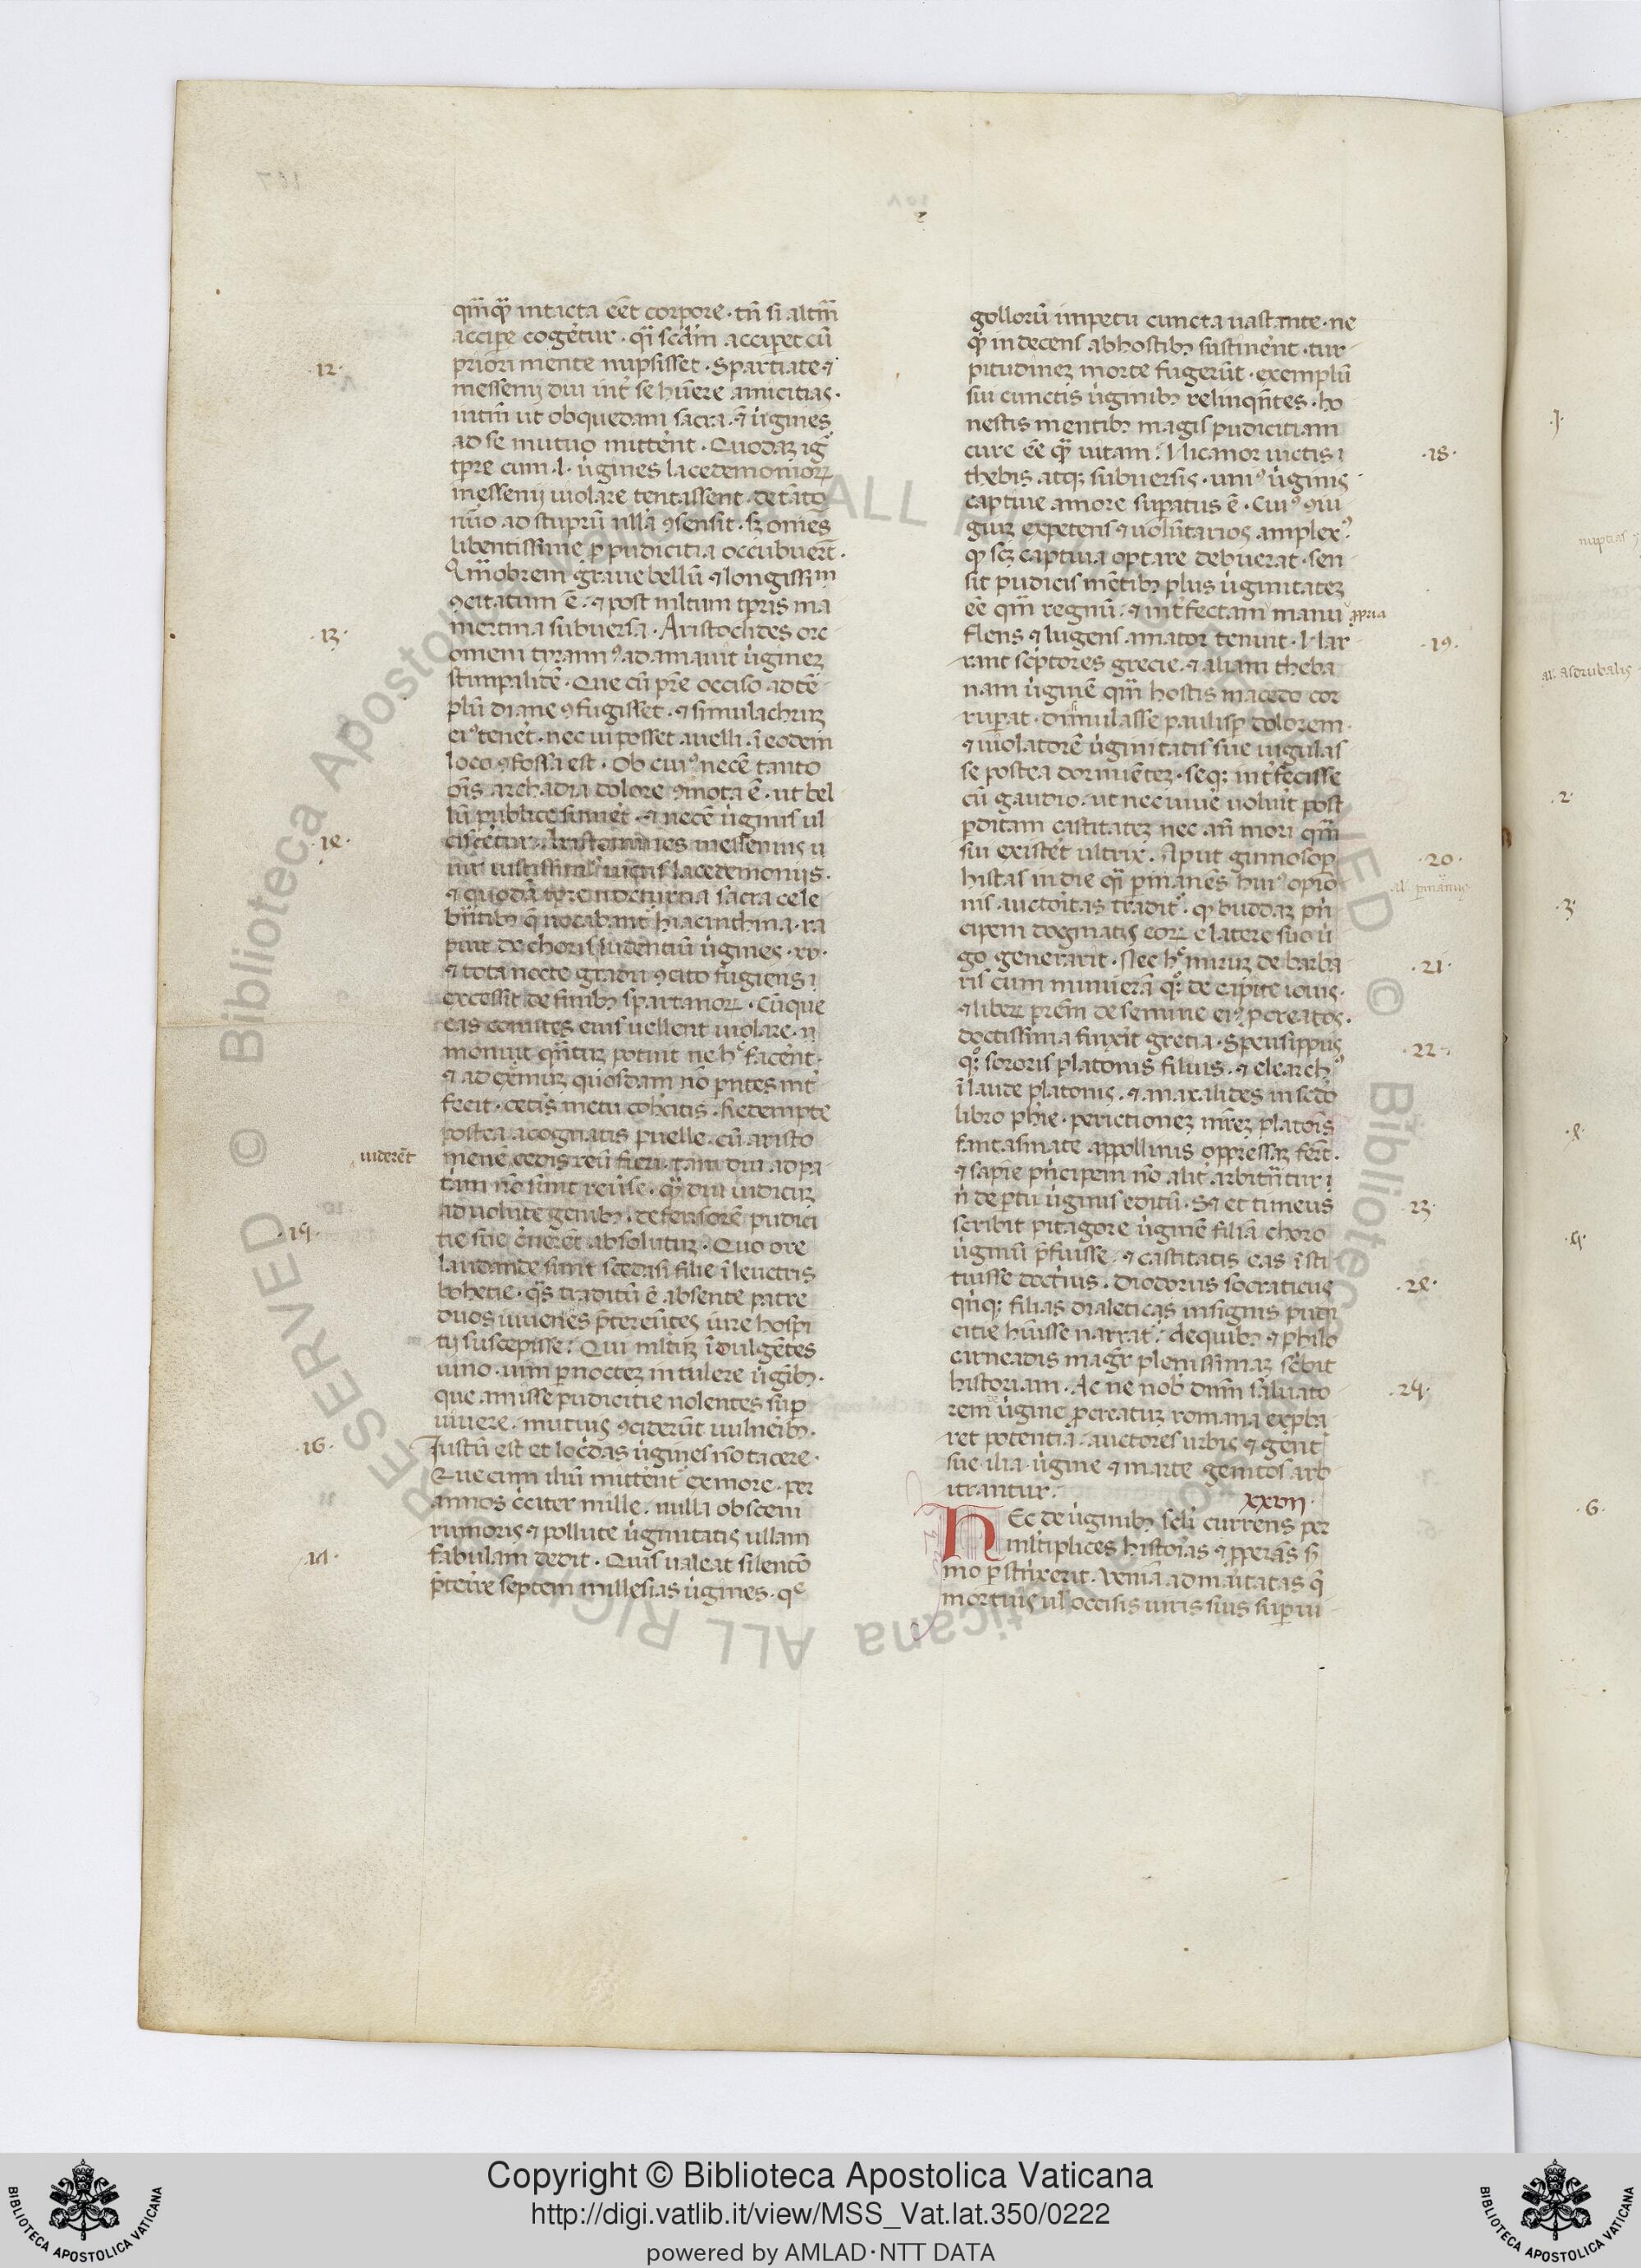 qm̅q̃ intacta eēt corpore · tn̄ si altm̅
accipe cogetur · q̄i scd̄m acciperet cū
priori mente nupsisset · Spartiate ⁊
messenij diu int̄ se hūere amicitias ·
intm̄ ut ob quedam sacra · ⁊ ūgines
ad se mutuo mittent · Quodaȝ igr̄
tpre cum · l · ūgines lacedemonioꝝ
messenij uiolare tentassent · de tāto
nūo ad stuprū nulla ꝯsensit · sȝ omēs
libentissime ꝓ pudicitia occubuerūt ·
Qm̅obrem graue bellū ⁊ longissim̅
ꝯcitatum ē : ⁊ post mltum tpris ma
mertina subuersa · Aristoclides orc
omeni tyrannꝰ adamauit ūgineȝ
stimpalidē · Que cū pr̄e occiso ad tē
plū diane ꝯfugisset · ⁊ simulachruȝ
eiꝰ tenet · nec ui posset auelli · ī eodem
loco ꝯfossa est · Ob cuiꝰ necē tanto
oīs archadia dolore ꝯmota ē · ut bel
lū publice sumet · ⁊ necē ūginis ul
cisceretur · Aristomenes messenius u
iustissimꝰ uictis lacedemoniis ·
⁊ quodā tpre nocturna sacra cele
bn̄tibꝫ q̄ uocabant hiacinthina · ra
puit de choris ludentiū ūgines · xv ·
⁊ tota nocte gradu ꝯcito fugiens ·
excessit de finibꝫ spartanoꝝ · Cūque
eas comites eius uellent uiolare ·
monuit qn̄tuȝ potuit ne hͨ facent ·
⁊ ad exemuȝ quosdam nō pn̄tes int̄
fecit · cetis metu cohcitis · Redempte
postea a cognatis puelle · cū aristo
menē cedis reū fieri · tam diu ad pa
uiderēt
triam nō sunt reūse · q̄ diu iudicuȝ
aduolute genibꝫ · defensorē pudici
tie sue cnerēt absolutuȝ · Quo ore
laudande sunt scedasi filie ī leuctris
bohetie · q̄s traditū ē absente patre
duos iuuenes p̄tereūtes iure hospi
tij suscepisse : Qui mltuȝ īdulgētes
uino · uim ꝑ nocteȝ intulere ūgibꝫ ·
que amisse pudicitie nolentes suꝑ
uiuere · mutuis ꝯciderūt uulneribꝫ ·
Iustū est et locdas ūgines nō tacere ·
Que cum iliū mittent ex more · per
annos cciter mille · nulla obsceni
rumoris ⁊ pollute ūginitatis ullam
fabulam dedit · Quis ualeat silentō
p̄terire septem millesias ūgines · qͤ
12 ·
13 ·
14 ·
15 ·
16 ·
17 ·
gollorū impetu cuncta uastante · ne
qͥ indecens ab hostibꝫ sustinent · tur
pitudineȝ morte fugerūt · exemplū
sui cunctis ūginibꝫ relinqn̄tes · ho
nestis mentibꝫ magis pudicitiam
cure eē q̄ uitam : Nicanor uictis
thebis atqȝ subuersis · uniꝰ ūginis
captiue amore suꝑatus ē · Cuiꝰ ꝯiu
giuȝ expetens ⁊ uolūtarios amplexꝰ ·
qͩ sc̄ȝ captiua optare debuerat · sen
sit pudicis mētibꝫ plus ūginitateȝ
eē qm̅ regnū : ⁊ int̄fectam manu ꝓpria
flens ⁊ lugens amator tenuit · Nar
rant scptores grecie · ⁊ aliam theba
nam ūginē qm̅ hostis macedo cor
ruꝑat · dissimulasse paulisꝑ dolorem ·
⁊ uiolatorē ūginitatis sue iugulas
se postea dormiēteȝ · seqȝ int̄fecisse
cū gaudio · ut nec uiue uoluit post
ꝑditam castitateȝ nec an̄ mori qm̅
sui existet ultrix · Aput gimnosop
histas indie q̄i ꝑ manꝰ huiꝰ opīo
nis auctoritas traditͬ · qͩ buddaȝ pn̄
cipem dogmatis eoꝝ e latere suo ū
go generarit · Nec hͨ miruȝ de barba
ris cum mineruā qͦqȝ de capite iouis ·
⁊ liberū pr̄em de femine eiꝰ ꝓcreatos ·
doctissima finxit gretia · Speusippus
qͦqȝ sororis platonis filius · ⁊ clearchꝰ
ī laude platonis · ⁊ maxalides in scdo
libro phie · perictioneȝ mr̄eȝ platonis
fantasmate appollinis oppressaȝ fert ·
⁊ sapīe pn̄cipem nō alit̄ arbitn̄tur
n̄ de ꝑtu ūginis editū · Sȝ et timeus
scribit pitagore ūginē filiā choro
ūginū p̄fuisse · ⁊ castitatis eas īsti
tuisse doctrius · Diodorus socraticus
qn̄qȝ filias dialeticas insignis pudi
citie hūisse narrat : de quibꝫ ⁊ philo
carneadis magr̄ plenissimaȝ scbit
historiam · Ac ne nob dnm̄ saluato
rem ūgine ꝓcreatuȝ romana expba
ret potentia · auctores urbis ⁊ gent
sue ilia · ūgine ⁊ marte genitos arb
itrantur ·
xxvii
Hec de ūginibꝫ scli currens per
mltiplices historias ⁊ ꝓperās s̄
mo ꝑstrixerit · Veniā ad maritatas q̄
mortuis ul occisis uiris suis suꝑui
18 ·
19 ·
20 ·
al · ꝑ manus
21 ·
22 ·
23 ·
24 ·
25 ·
nuptias
al · asdrubalis
1 ·
2 ·
3 ·
4 ·
5 ·
6 ·
© Biblioteca Apostolica Vaticana ALL RIGHTS RESERVED
Copyright © Biblioteca Apostolica Vaticana
http://digi.vatlib.it/view/MSS_Vat.lat.350/0222
powered by AMLAD·NTT DATA
BIBLIOTECA APOSTOLICA VATICANA
BIBLIOTECA APOSTOLICA VATICANA